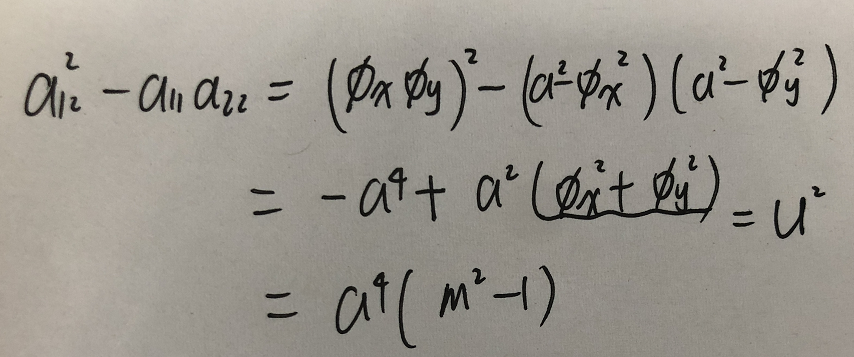 a₁₂² - a₁₁ a₂₂ = (ϕx ϕy)² - (a² - ϕx²)(a² - ϕy²)
= -a⁴ + a² (ϕx² + ϕy²) = U²
= a⁴ (m² - 1)